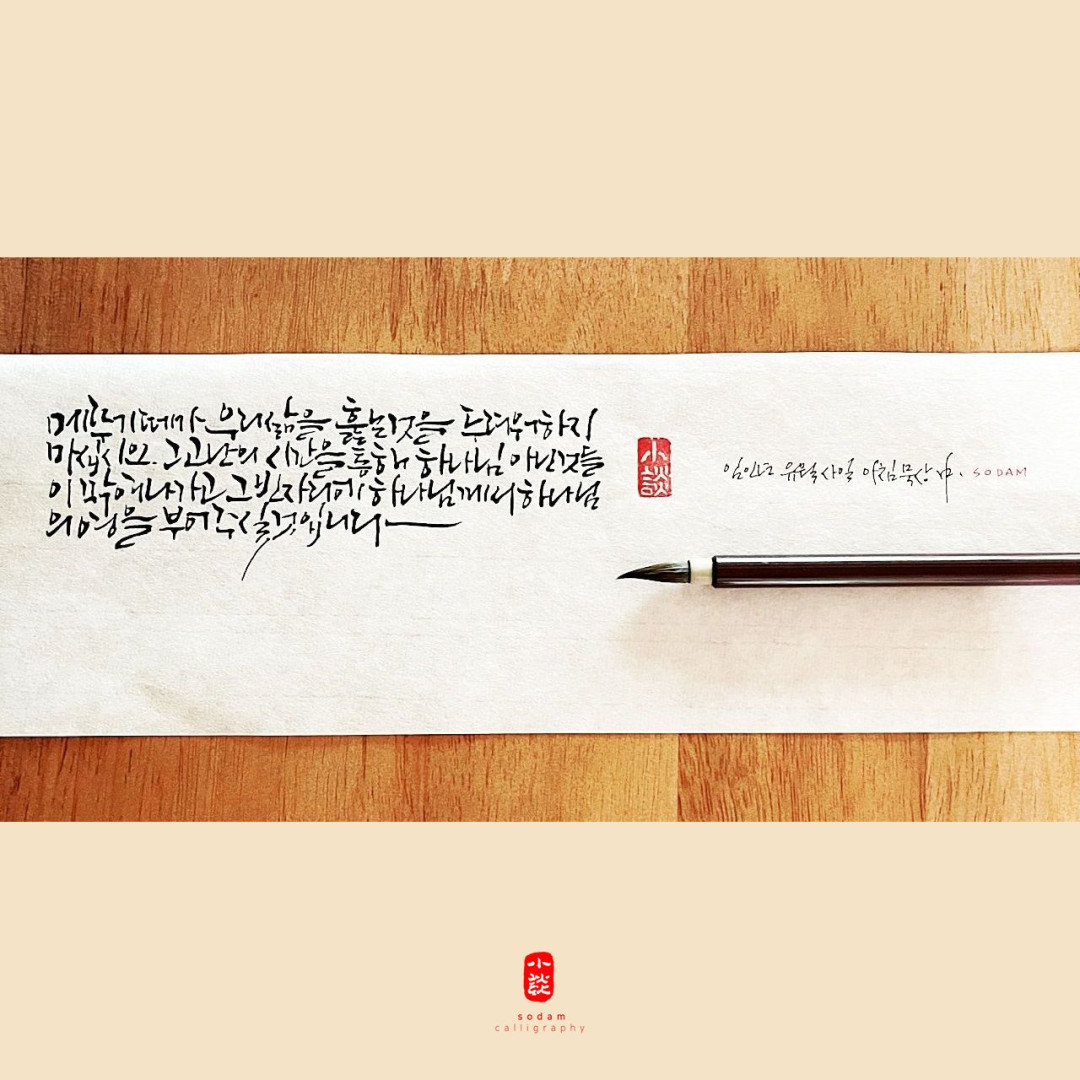 메뚜기떼가 우리 삶을 훑는 것을 두려워하지
마십시오. 그 고난의 시간을 통해 하나님 아닌 것들
이 떨어져 나가고 그 빈자리에 하나님께서 하나님
의 영을 부어주실 것입니다
小談
임인년 유월 사일 아침묵상 中. SODAM
小談
sodam
calligraphy